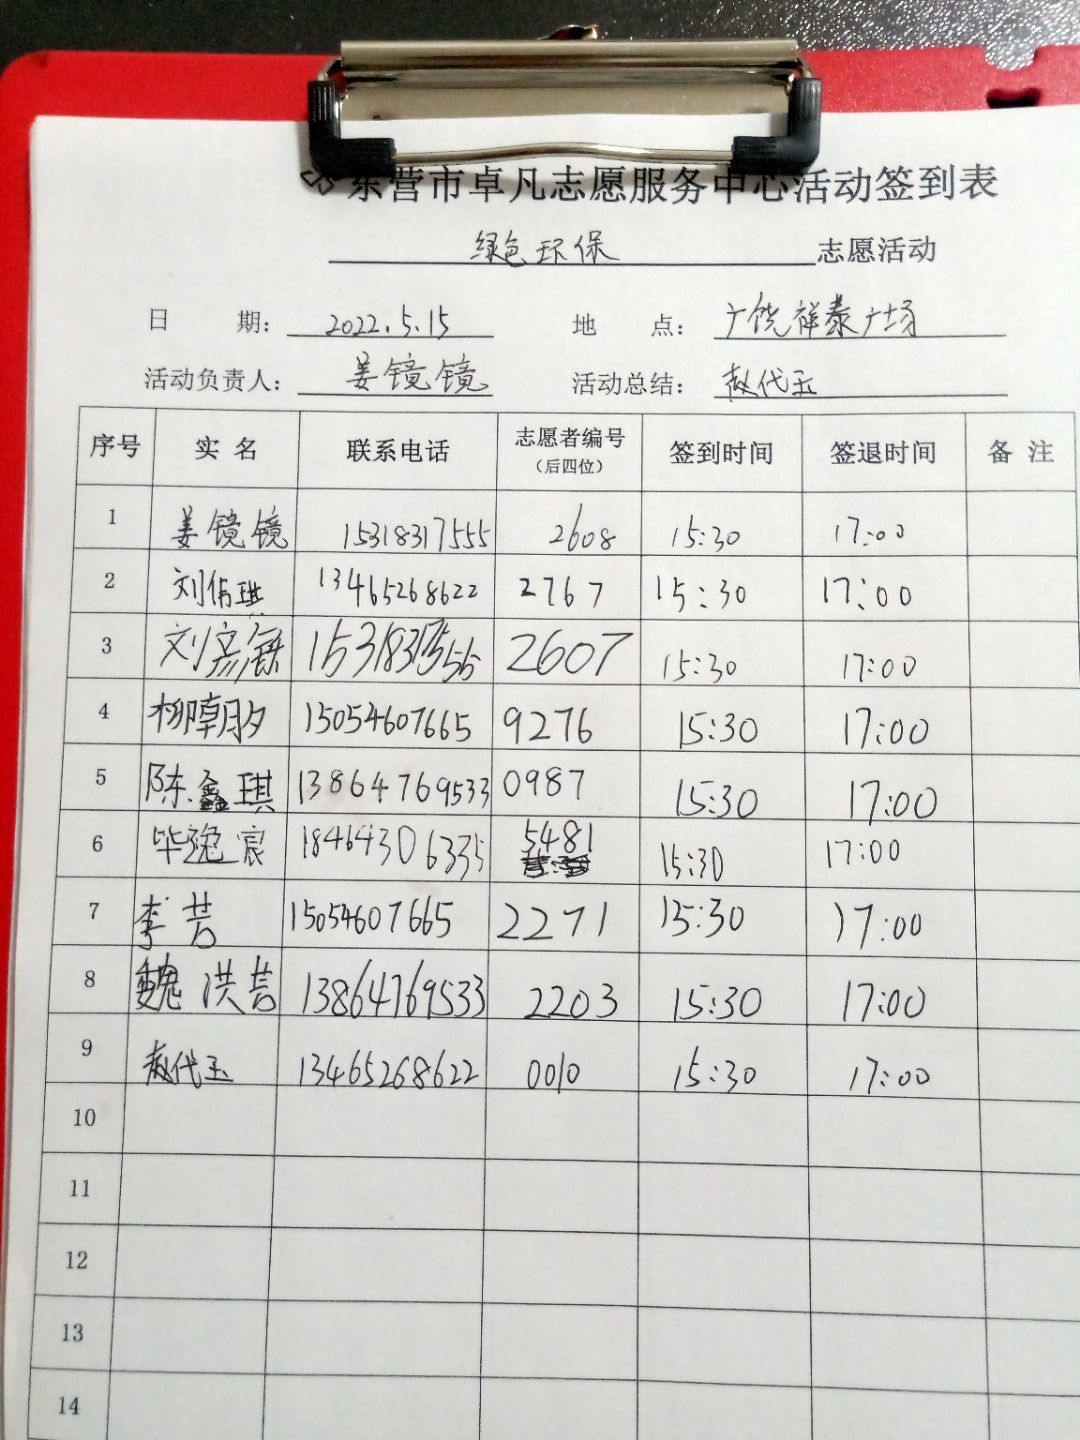 东营市卓凡志愿服务中心活动签到表
绿色环保 志愿活动
日 期: 2022.5.15 地 点: 广饶祥泰广场
活动负责人: 姜镜镜 活动总结: 赵代玉
序号 实 名 联系电话 志愿者编号 (后四位) 签到时间 签退时间 备 注
1 姜镜镜 15318317555 2608 15:30 17:00
2 刘伟琪 13465268622 2767 15:30 17:00
3 刘 15318317556 2607 15:30 17:00
4 柳朝夕 15054607665 9276 15:30 17:00
5 陈鑫琪 13864769533 0987 15:30 17:00
6 毕逸宸 18464306335 5481 15:30 17:00
7 李芸 15054607665 2271 15:30 17:00
8 魏洪芸 13864769533 2203 15:30 17:00
9 赵代玉 13465268622 0010 15:30 17:00
10
11
12
13
14